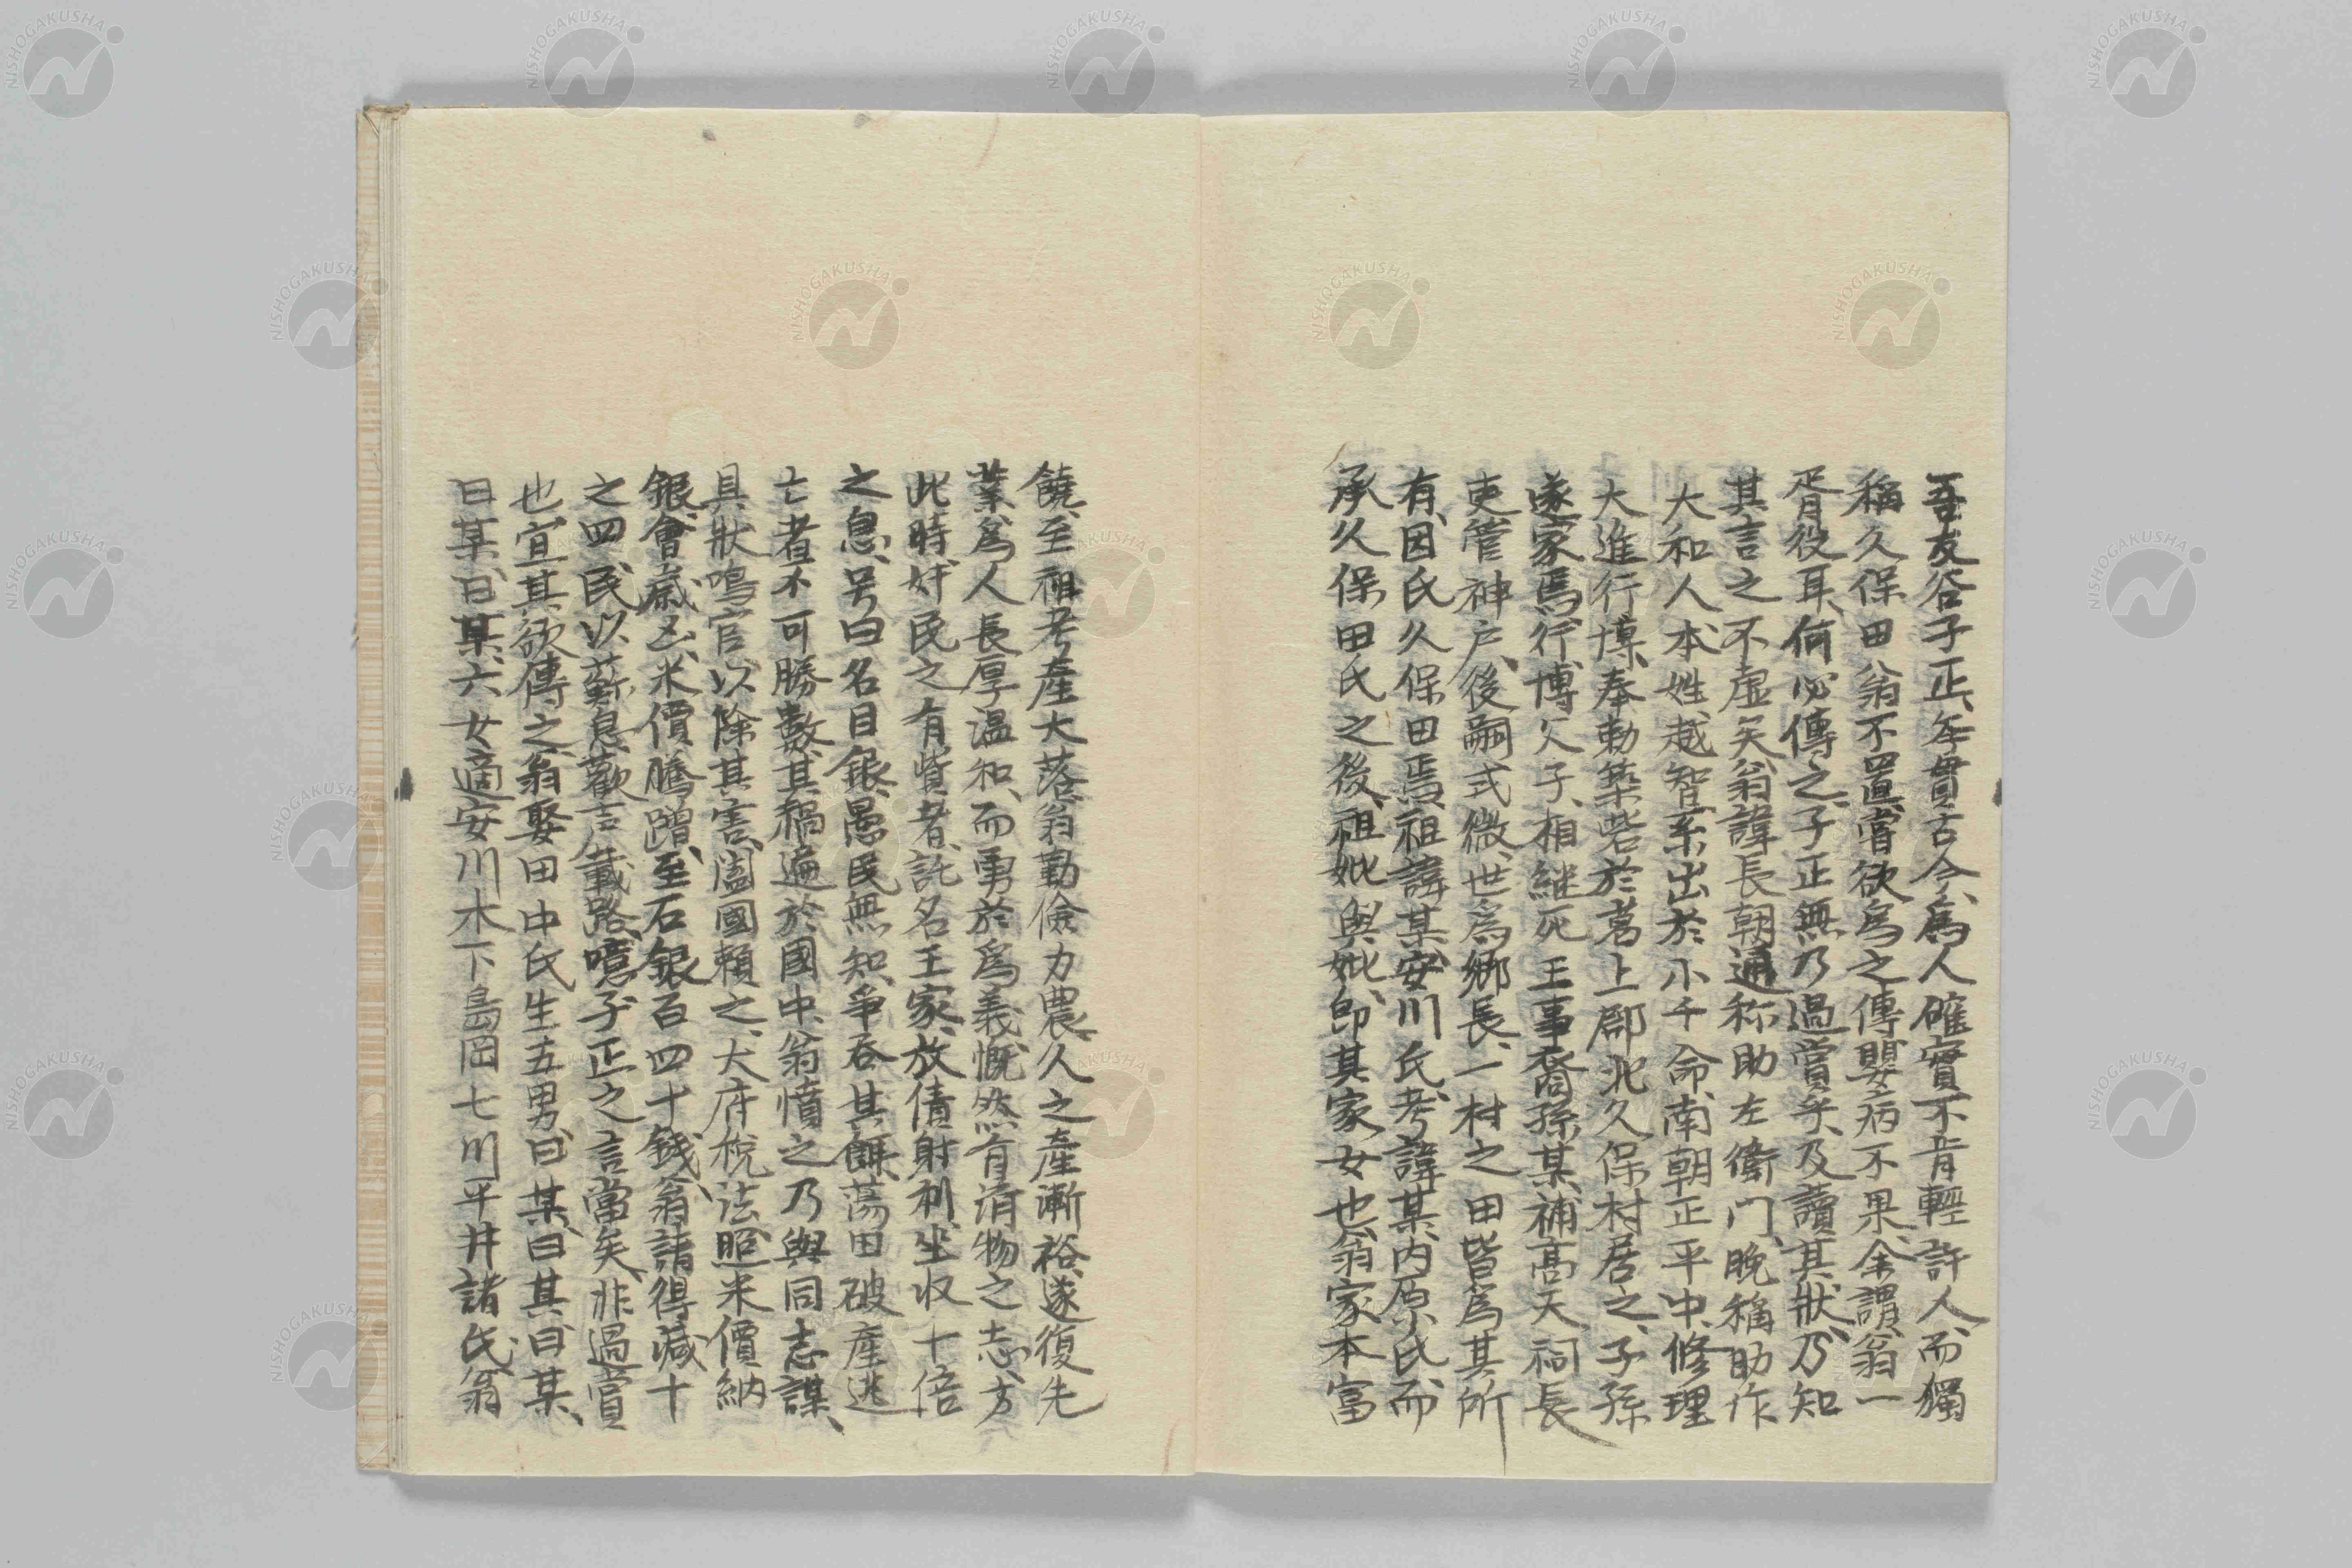 吾友谷子正、年貫古今、為人確實不肯輕許人、而獨
稱久保田翁不置、嘗欲為之傳、嬰病不果、余謂、翁一
胥役耳、何必傳之、子正無乃過賞乎、及讀其狀、乃知
其言之不虛矣、翁諱長朝、通称助左衛门、晩稱助作
大和人、本姓越智、系出於小千命、南朝正平中、修理
大進行博、奉勅築砦於葛上郡北久保村居之、子孫
遂家焉、行博父子、相継死王事、裔孫某、補高天祠長
吏管神戸、後嗣式微、世為郷長、一村之田皆為其所
有、因氏久保田焉、祖諱某、安川氏、考諱某、内原氏、而
承久保田氏之後、祖妣與妣、即其家女也、翁家本富
饒、至祖考産大落、翁勤儉力農、久之産漸裕、遂復先
業、為人長厚溫和、而勇於為義、慨然有濟物之志、方
此時、奸民之有貲者、託名王家、放債射利、坐収十倍
之息、号曰名目銀、愚民無知、爭吞其餌、蕩田破産逃
亡者不可勝數、其禍遍於國中、翁憤之、乃與同志謀、
具狀鳴官、以除其害、闔國賴之、大府稅法、照米價納
銀、會歲凶、米價騰躍、至石銀百四十錢、翁請得减十
之四、民以蘓息、歡言載路、噫子正之言當矣、非過賞
也、宜其欲傳之、翁娶田中氏、生五男、曰某、曰某、曰某、
曰某、曰某、六女適安川木下島岡七川平井諸氏、翁
NISHOGAKUSHA